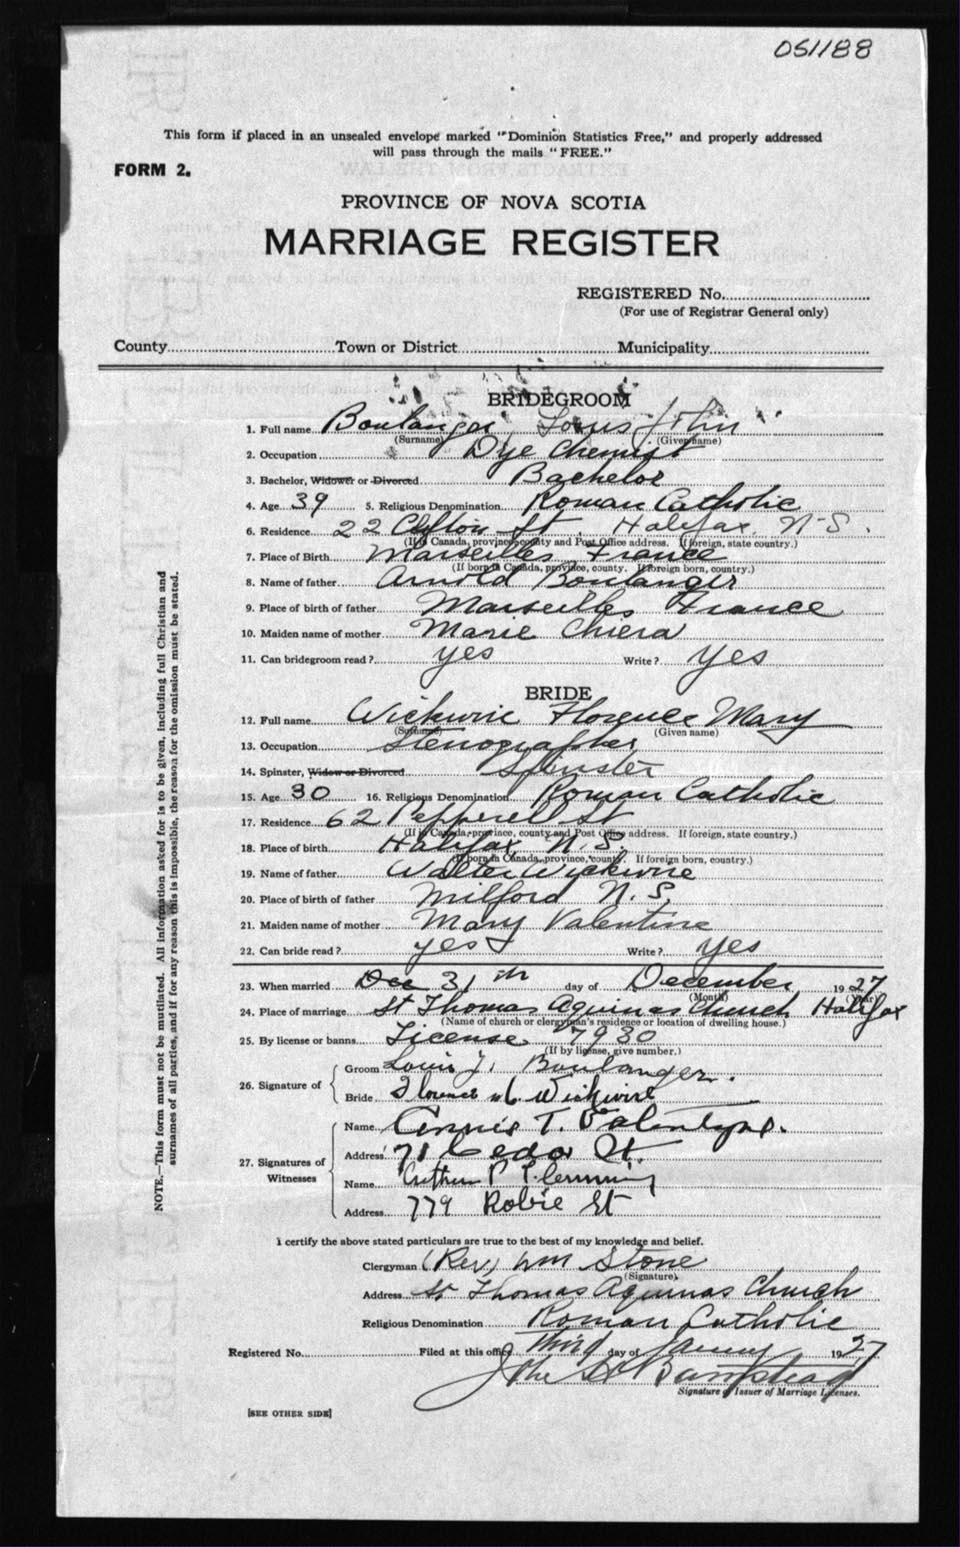 051188
This form if placed in an unsealed envelope marked "Dominion Statistics Free," and properly addressed
will pass through the mails "FREE."
FORM 2.
PROVINCE OF NOVA SCOTIA
MARRIAGE REGISTER
REGISTERED No.
(For use of Registrar General only)
County Town or District Municipality
BRIDEGROOM
1. Full name Boulanger Louis John
(Surname) (Given name)
2. Occupation Dye Chemist
3. Bachelor, Widower or Divorced Bachelor
4. Age 39 5. Religious Denomination Roman Catholic
6. Residence 22 Clifton St Halifax, N-S.
(If in Canada, province, county and Post Office address. If foreign, state country.)
7. Place of Birth Marseilles France
(If born in Canada, province, county. If foreign born, country.)
8. Name of father Arnold Boulanger
9. Place of birth of father Marseilles France
10. Maiden name of mother Marie Chiera
11. Can bridegroom read? yes Write? yes
BRIDE
12. Full name Wickwire Florence Mary
(Surname) (Given name)
13. Occupation Stenographer
14. Spinster, Widow or Divorced Spinster
15. Age 30 16. Religious Denomination Roman Catholic
17. Residence 62 Pepperell St
(If in Canada, province, county and Post Office address. If foreign, state country.)
18. Place of birth Halifax N.S.
(If born in Canada, province, county. If foreign born, country.)
19. Name of father Walter Wickwire
20. Place of birth of father Milford N.S.
21. Maiden name of mother Mary Valentine
22. Can bride read? yes Write? yes
23. When married Dec 31th day of December 1927
(Month) (Year)
24. Place of marriage St Thomas Aquinas Church Halifax
(Name of church or clergyman's residence or location of dwelling house.)
25. By license or banns License 7930
(If by license, give number.)
26. Signature of
Groom Louis J. Boulanger.
Bride Florence M. Wickwire
27. Signatures of Witnesses
Name Annie T.
Address 71 Cedar St.
Name Arthur P. Flemming
Address 779 Robie St
I certify the above stated particulars are true to the best of my knowledge and belief.
Clergyman (Rev) Wm Stone
(Signature)
Address St Thomas Aquinas Church
Religious Denomination Roman Catholic
Registered No. Filed at this office Third day of January 1927
John
Signature of Issuer of Marriage Licenses.
[SEE OTHER SIDE]
NOTE.—This form must not be mutilated. All information asked for is to be given, including full Christian and
surnames of all parties, and if for any reason this is impossible, the reason for the omission must be stated.